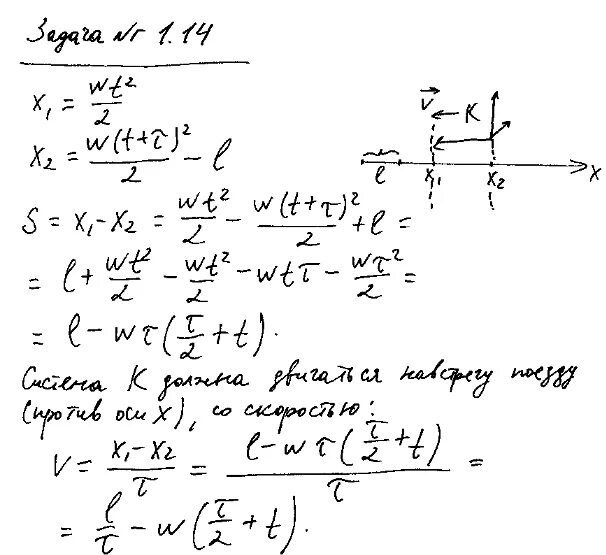 Задача № 1.14
x₁ = wt²/2
x₂ = w(t+τ)²/2 − l
S = x₁−x₂ = wt²/2 − w(t+τ)²/2 + l =
= l + wt²/2 − wt²/2 − wtτ − wτ²/2 =
= l − wτ(τ/2 + t).
V⃗ K
l x₁ x₂ x
Система K должна двигаться навстречу поезду
(против оси x), со скоростью:
V = (x₁−x₂)/τ = (l − wτ(τ/2 + t))/τ =
= l/τ − w(τ/2 + t).